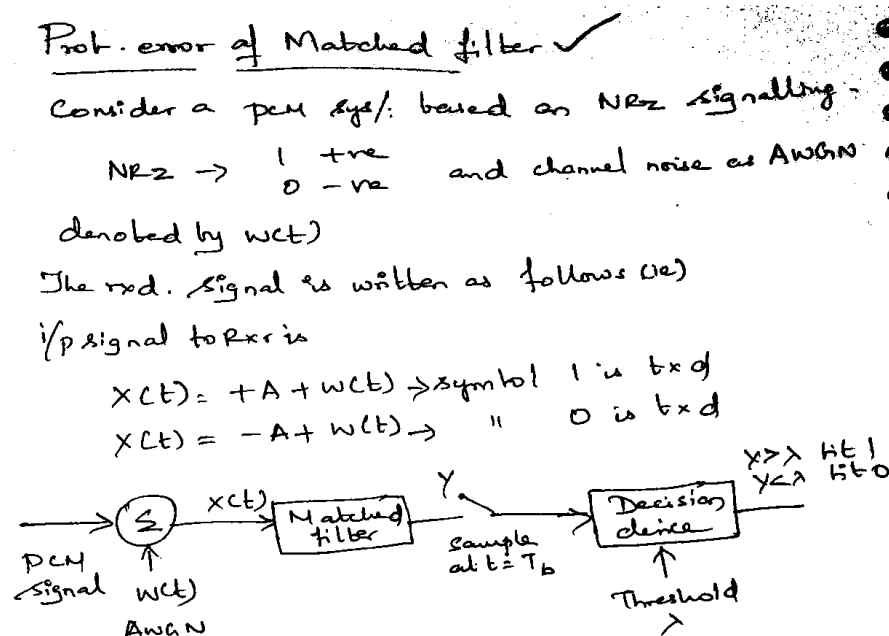 Prob. error of Matched filter ✓
Consider a PCM sys/: based on NRZ signalling.
NRZ → 1 +ve
0 -ve and channel noise as AWGN
denoted by w(t)
The rxd. signal is written as follows (ie)
i/p signal to Rxr is
X(t) = +A + w(t) → symbol 1 is txd
X(t) = -A + w(t) → " 0 is txd
PCM signal
Σ
w(t)
AWGN
X(t)
Matched filter
Y
sample
at t = T_b
Decision
device
Threshold
λ
Y>λ bit 1
Y<λ bit 0